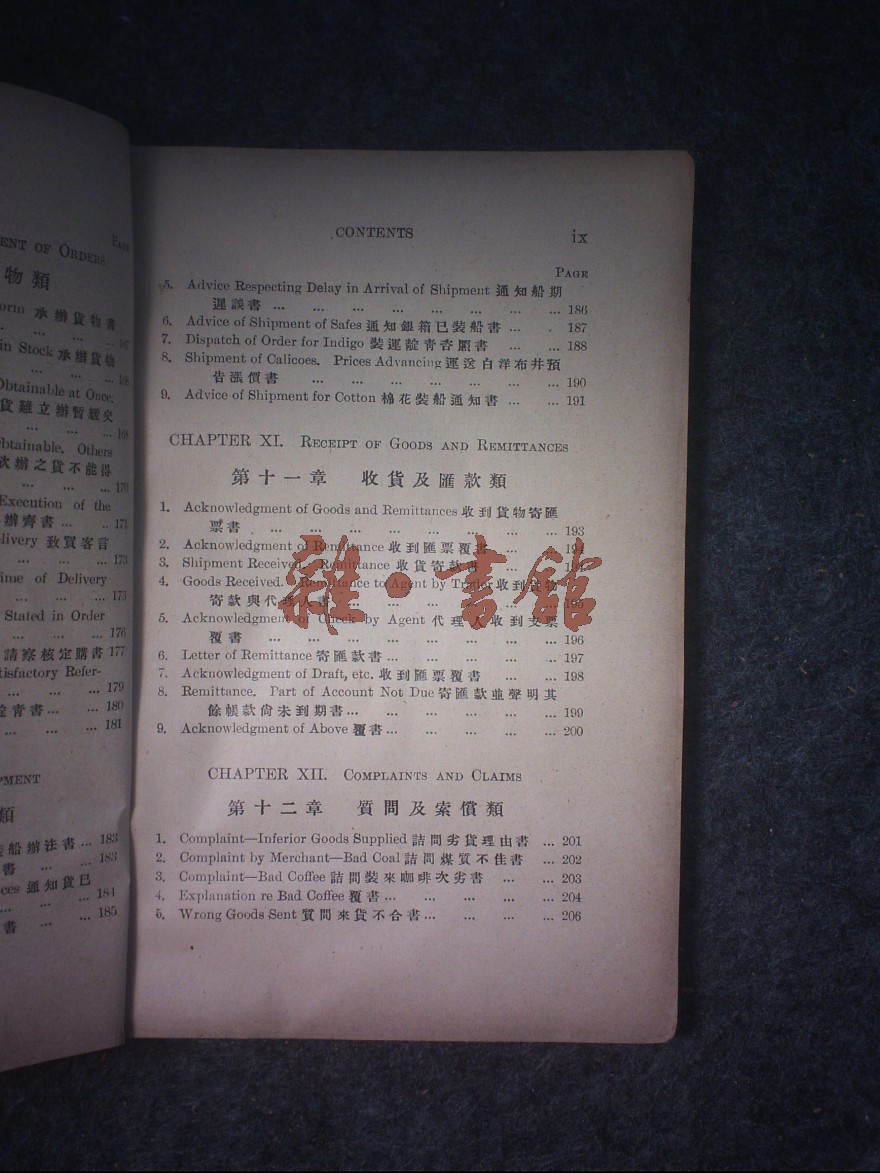 ENT OF ORDERS
物類
PAGE
orm 承辦貨物書
... ... ... 167
in Stock 承辦貨物
... ... ... 168
Obtainable at Once.
貨難立辦暫緩
... ... ... 169
btainable. Others
欵辦之貨不能得
... ... ... 170
Execution of the
辦齊書 ... 171
elivery 致買客言
... ... ... 173
ime of Delivery
... ... ... 175
Stated in Order
... ... ... 176
請察核定購書 177
tisfactory Refer-
... ... ... 179
靛青書 ... ... 180
... ... ... 181
PMENT
類
裝船辦法書 ... 183
書 ... ... 183
ces 通知貨已
... ... ... 184
書 ... ... 185
CONTENTS ix
PAGE
5. Advice Respecting Delay in Arrival of Shipment 通知船期
遲誤書 ... ... ... ... ... ... ... ... 186
6. Advice of Shipment of Safes 通知銀箱已裝船書 ... . 187
7. Dispatch of Order for Indigo 裝運靛青書 ... ... 188
8. Shipment of Calicoes. Prices Advancing 運送白洋布幷預
告漲價書 ... ... ... ... ... ... ... 190
9. Advice of Shipment for Cotton 棉花裝船通知書 ... ... 191
CHAPTER XI. RECEIPT OF GOODS AND REMITTANCES
第十一章 收貨及匯款類
1. Acknowledgment of Goods and Remittances 收到貨物寄匯
票書 ... ... ... ... ... ... ... ... 193
2. Acknowledgment of Remittance 收到匯票覆書 ... ... 194
3. Shipment Received. Remittance 收貨寄款書 ... ... 194
4. Goods Received. Remittance to Agent by Trader 收到貨物
寄款與代理人書 ... ... ... ... ... 195
5. Acknowledgment of Check by Agent 代理人收到支票
覆書 ... ... ... ... ... ... ... ... 196
6. Letter of Remittance 寄匯款書 ... ... ... ... ... 197
7. Acknowledgment of Draft, etc. 收到匯票覆書 ... ... 198
8. Remittance. Part of Account Not Due 寄匯款並聲明其
餘帳款尙未到期書 ... ... ... ... ... ... 199
9. Acknowledgment of Above 覆書 ... ... ... ... ... 200
CHAPTER XII. COMPLAINTS AND CLAIMS
第十二章 質問及索償類
1. Complaint—Inferior Goods Supplied 詰問劣貨理由書 ... 201
2. Complaint by Merchant—Bad Coal 詰問煤質不佳書 ... 202
3. Complaint—Bad Coffee 詰問裝來咖啡次劣書 ... ... 203
4. Explanation re Bad Coffee 覆書 ... ... ... ... 204
5. Wrong Goods Sent 質問來貨不合書 ... ... ... ... 206
雜·書館